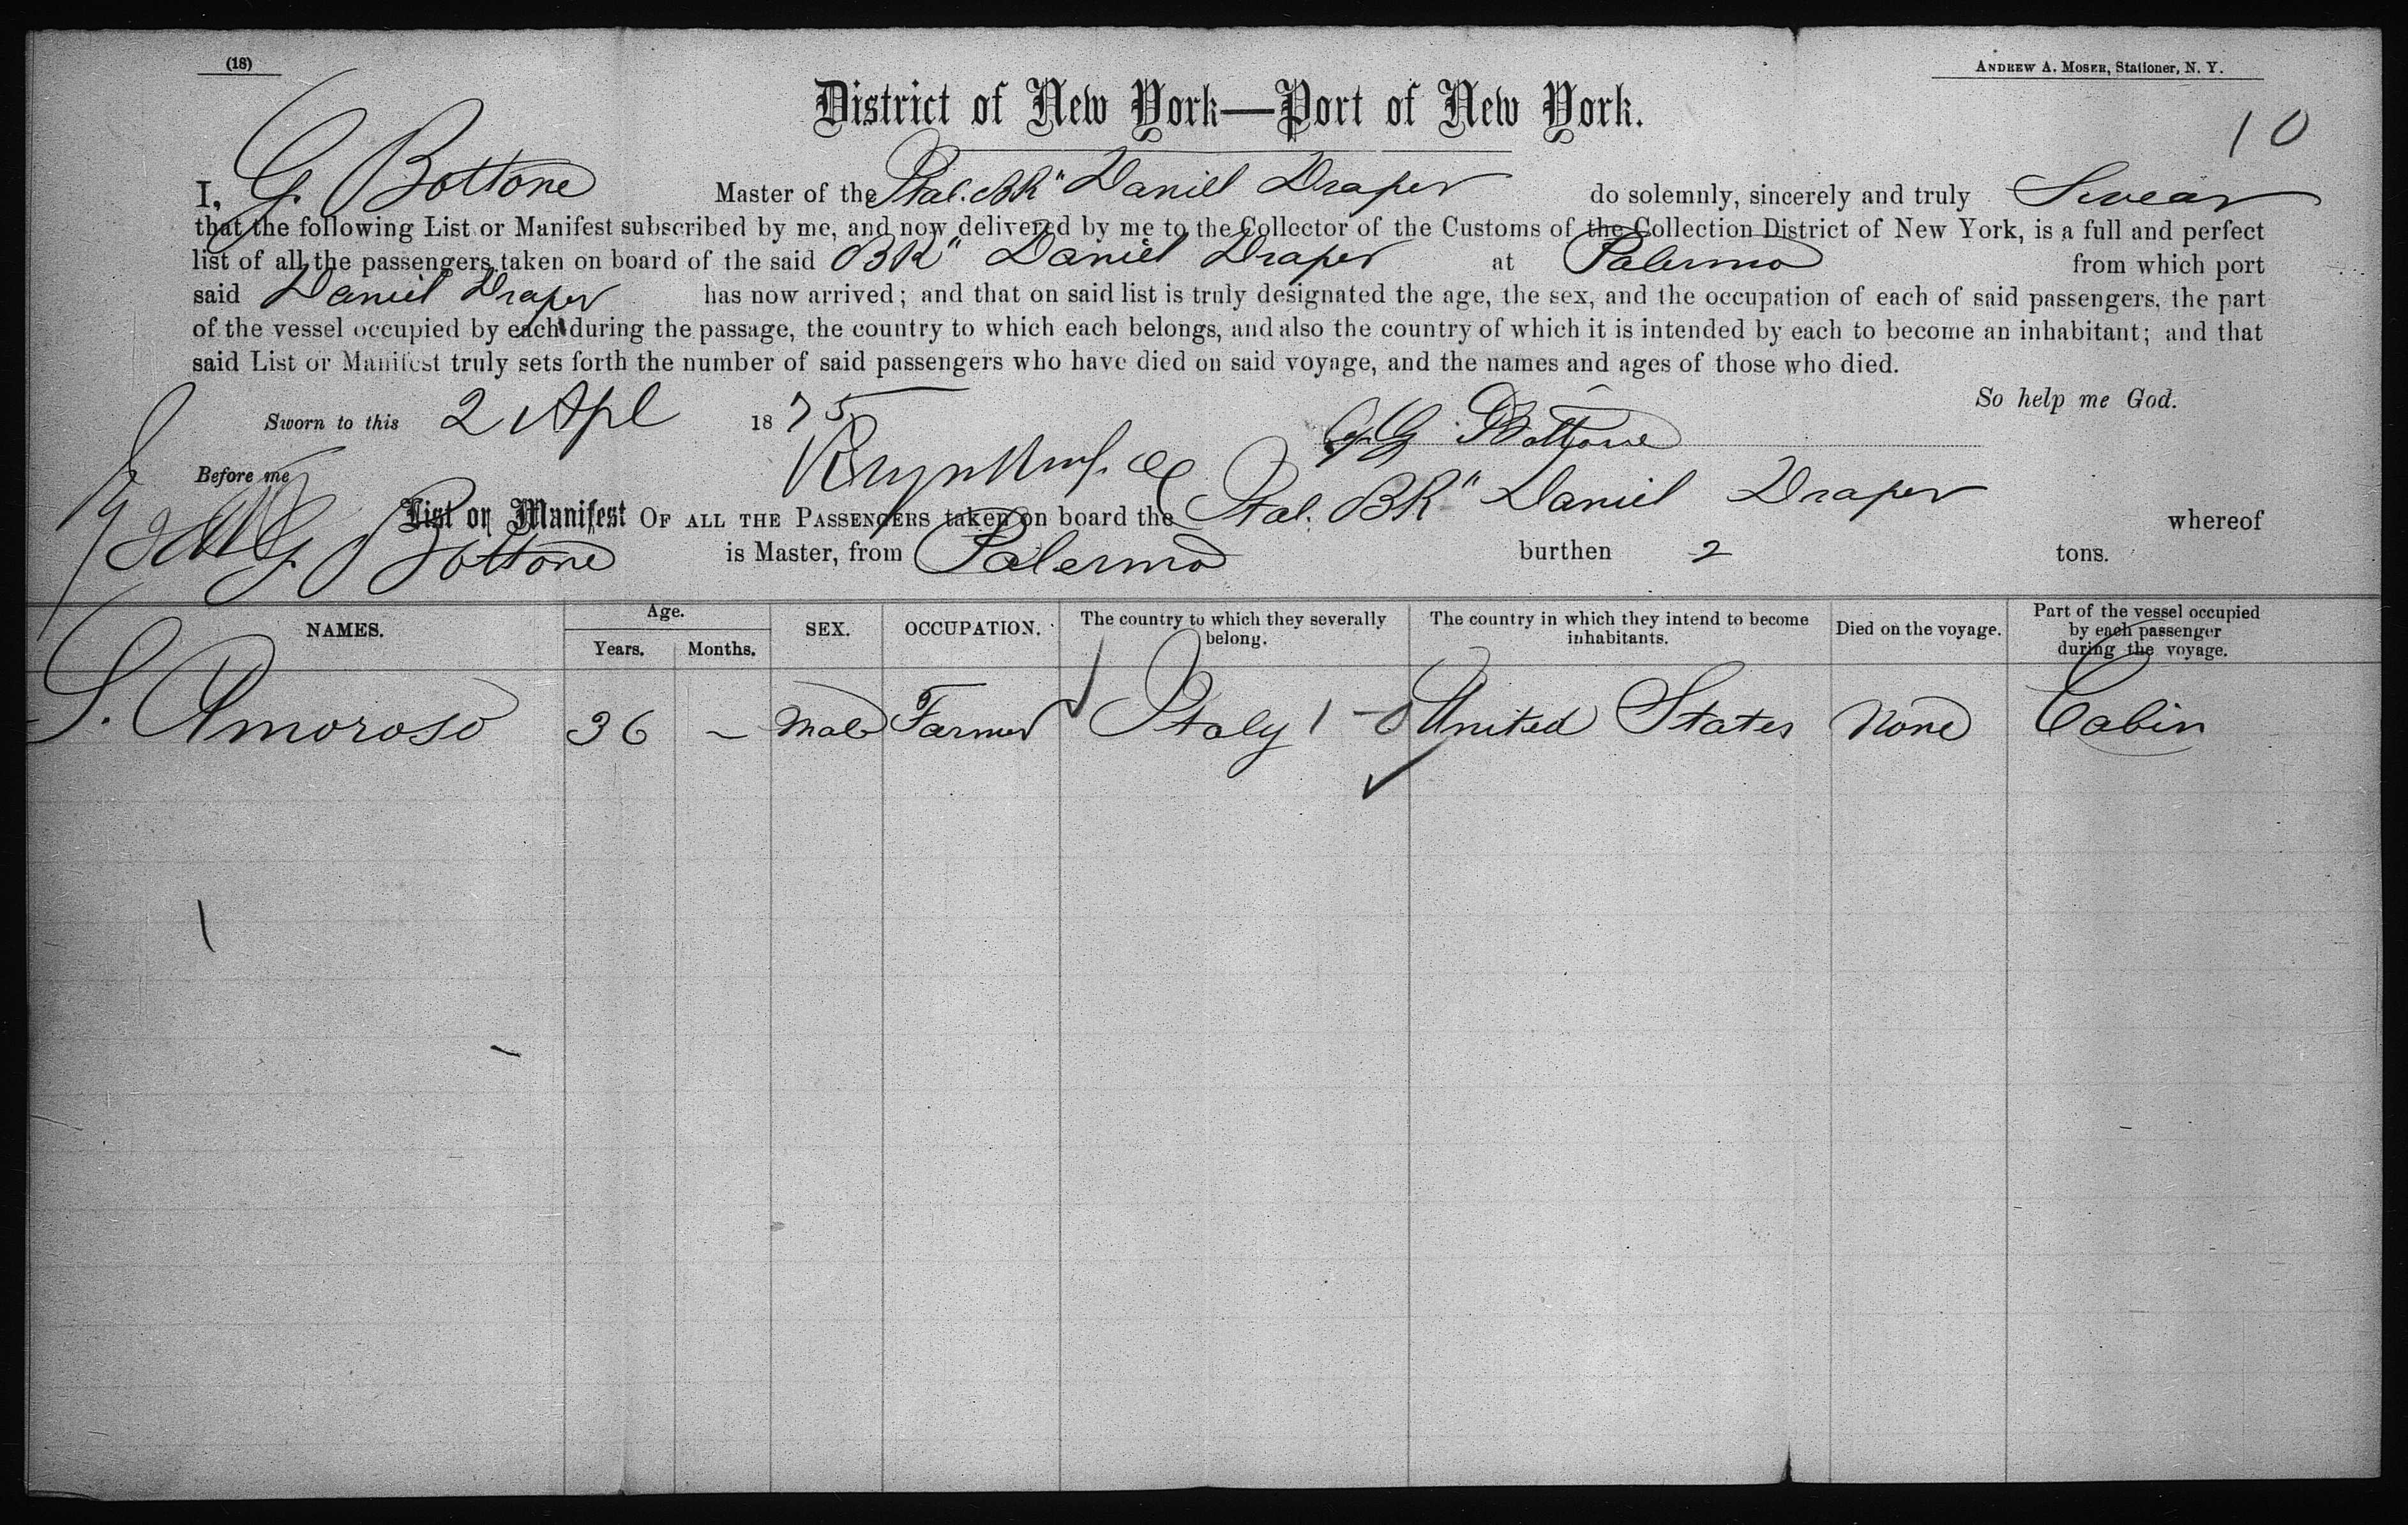 (18)
ANDREW A. MOSER, Stationer, N. Y.
District of New York—Port of New York.
10
I, G. Bottone Master of the Ital. BK" Daniel Draper do solemnly, sincerely and truly Swear
that the following List or Manifest subscribed by me, and now delivered by me to the Collector of the Customs of the Collection District of New York, is a full and perfect
list of all the passengers taken on board of the said BK" Daniel Draper at Palermo from which port
said Daniel Draper has now arrived; and that on said list is truly designated the age, the sex, and the occupation of each of said passengers, the part
of the vessel occupied by each during the passage, the country to which each belongs, and also the country of which it is intended by each to become an inhabitant; and that
said List or Manifest truly sets forth the number of said passengers who have died on said voyage, and the names and ages of those who died.
So help me God.
Sworn to this 2 Apl 1875 G Bottone
Before me
List or Manifest OF ALL THE PASSENGERS taken on board the Ital. BK" Daniel Draper whereof
G. Bottone is Master, from Palermo burthen 2 tons.
NAMES. Age. Years. Months. SEX. OCCUPATION. The country to which they severally belong. The country in which they intend to become inhabitants. Died on the voyage. Part of the vessel occupied by each passenger during the voyage.
S. Amoroso 36 – Male Farmer Italy 1 – 0 United States None Cabin